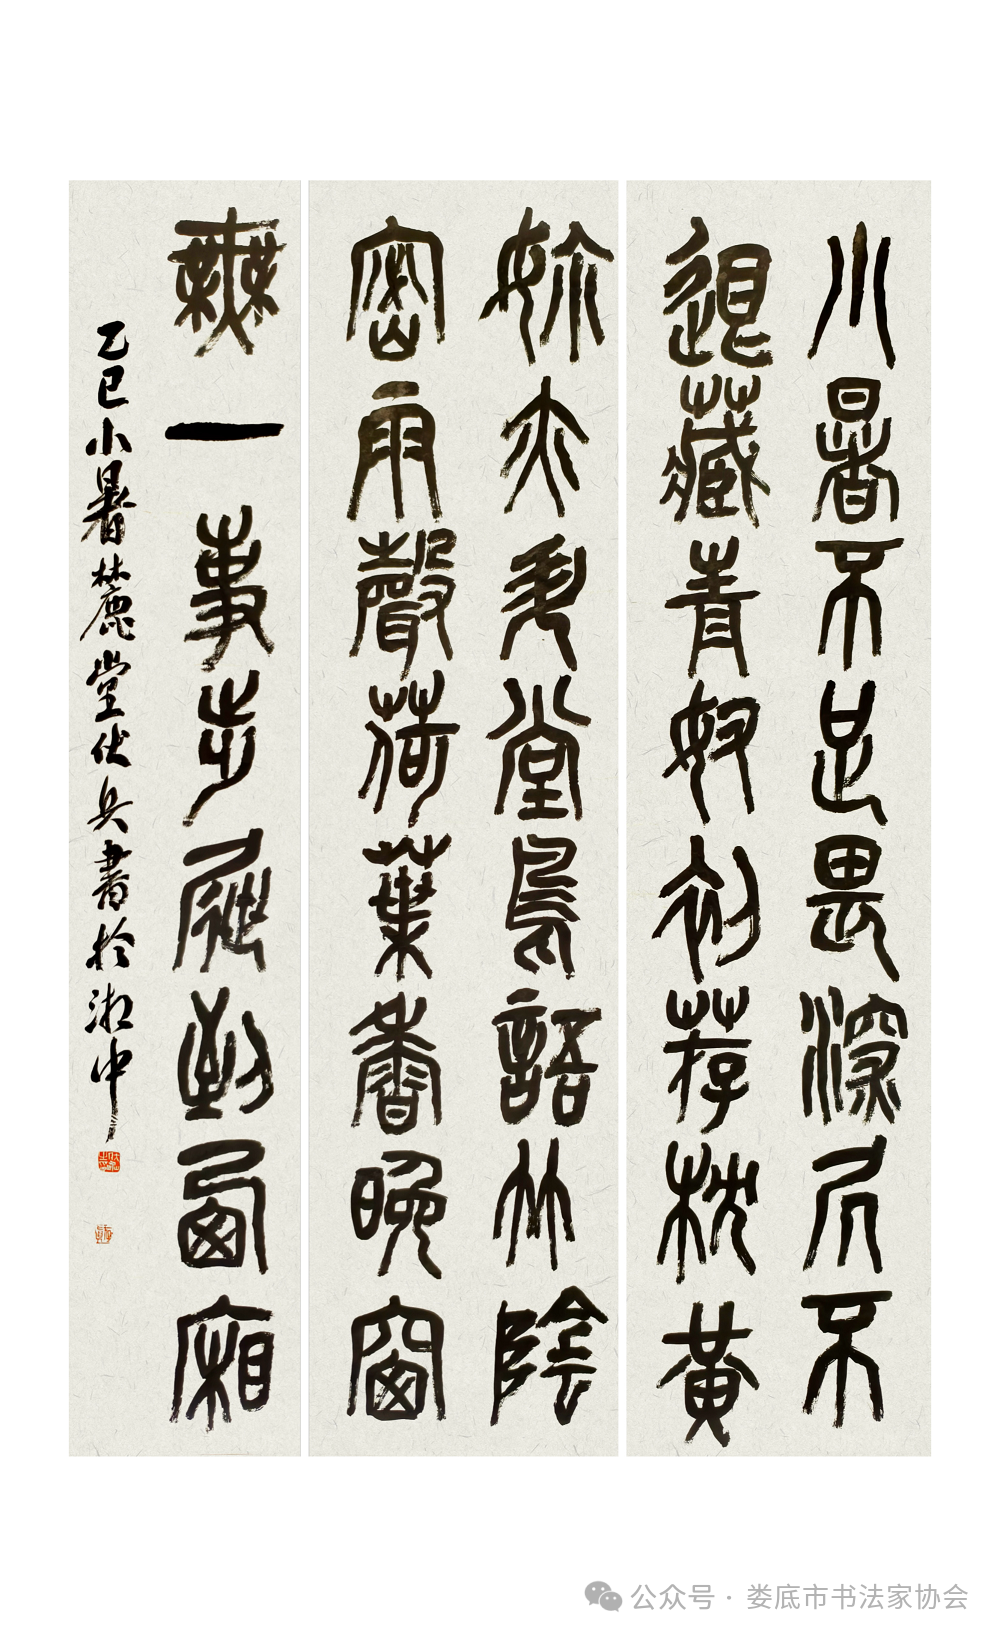 小暑不足畏深居不
退藏青奴初荐枕黄
妳亦升堂鳥語竹陰
密雨聲荷葉香晚窗
無一事步屧到西廂
乙巳小暑麓堂伏兵書於湘中
公众号 · 娄底市书法家协会